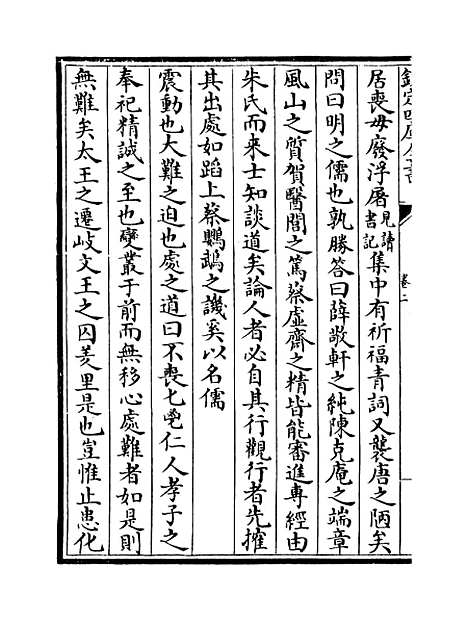 欽定四庫全書
卷二
居喪毋廢浮屠見讀書記集中有祈福青詞又襲唐之陋矣
問曰明之儒也孰勝答曰薛敬軒之純陳克庵之端章
風山之質賀醫閭之篤蔡虛齋之精皆能審進專經由
朱氏而來士知談道矣論人者必自其行觀行者先搉
其出處如蹈上蔡鸚鵡之譏奚以名儒
震動也大難之迫也處之道曰不喪匕鬯仁人孝子之
奉祀精誠之至也變叢于前而無移心處難者如是則
無難矣太王之遷岐文王之囚羑里是也豈惟止患化